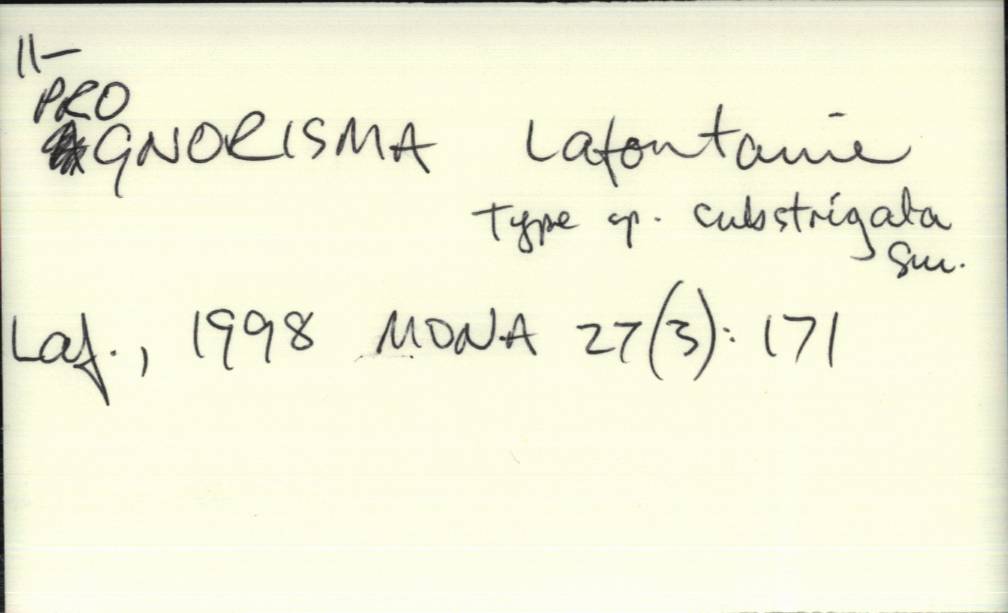 11-
PRO
GNORISMA Lafontaine
Type sp. substrigata
Sm.
Laf., 1998 MONA 27(3): 171